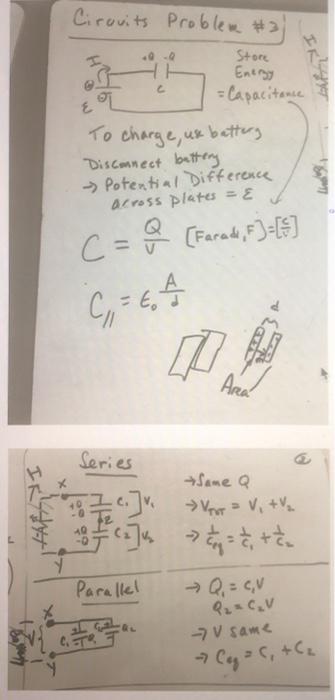 Circuits Problem #2
I
+Q -Q
C
ε
Store
Energy
= Capacitance
To charge, use battery
Disconnect battery
→ Potential Difference
across plates = ε
C = Q/V [Farads, F] = [C/V]
C// = ε₀ A/d
d
Area
Series
I
X
+Q
-Q
C₁ ] V₁
+Q
-Q
C₂ ] V₂
Y
→ Same Q
→ V_TOT = V₁ + V₂
→ 1/Ceq = 1/C₁ + 1/C₂
Parallel
X
C₁
Q₁
C₂
Q₂
Y
→ Q₁ = C₁V
Q₂ = C₂V
→ V same
→ Ceq = C₁ + C₂